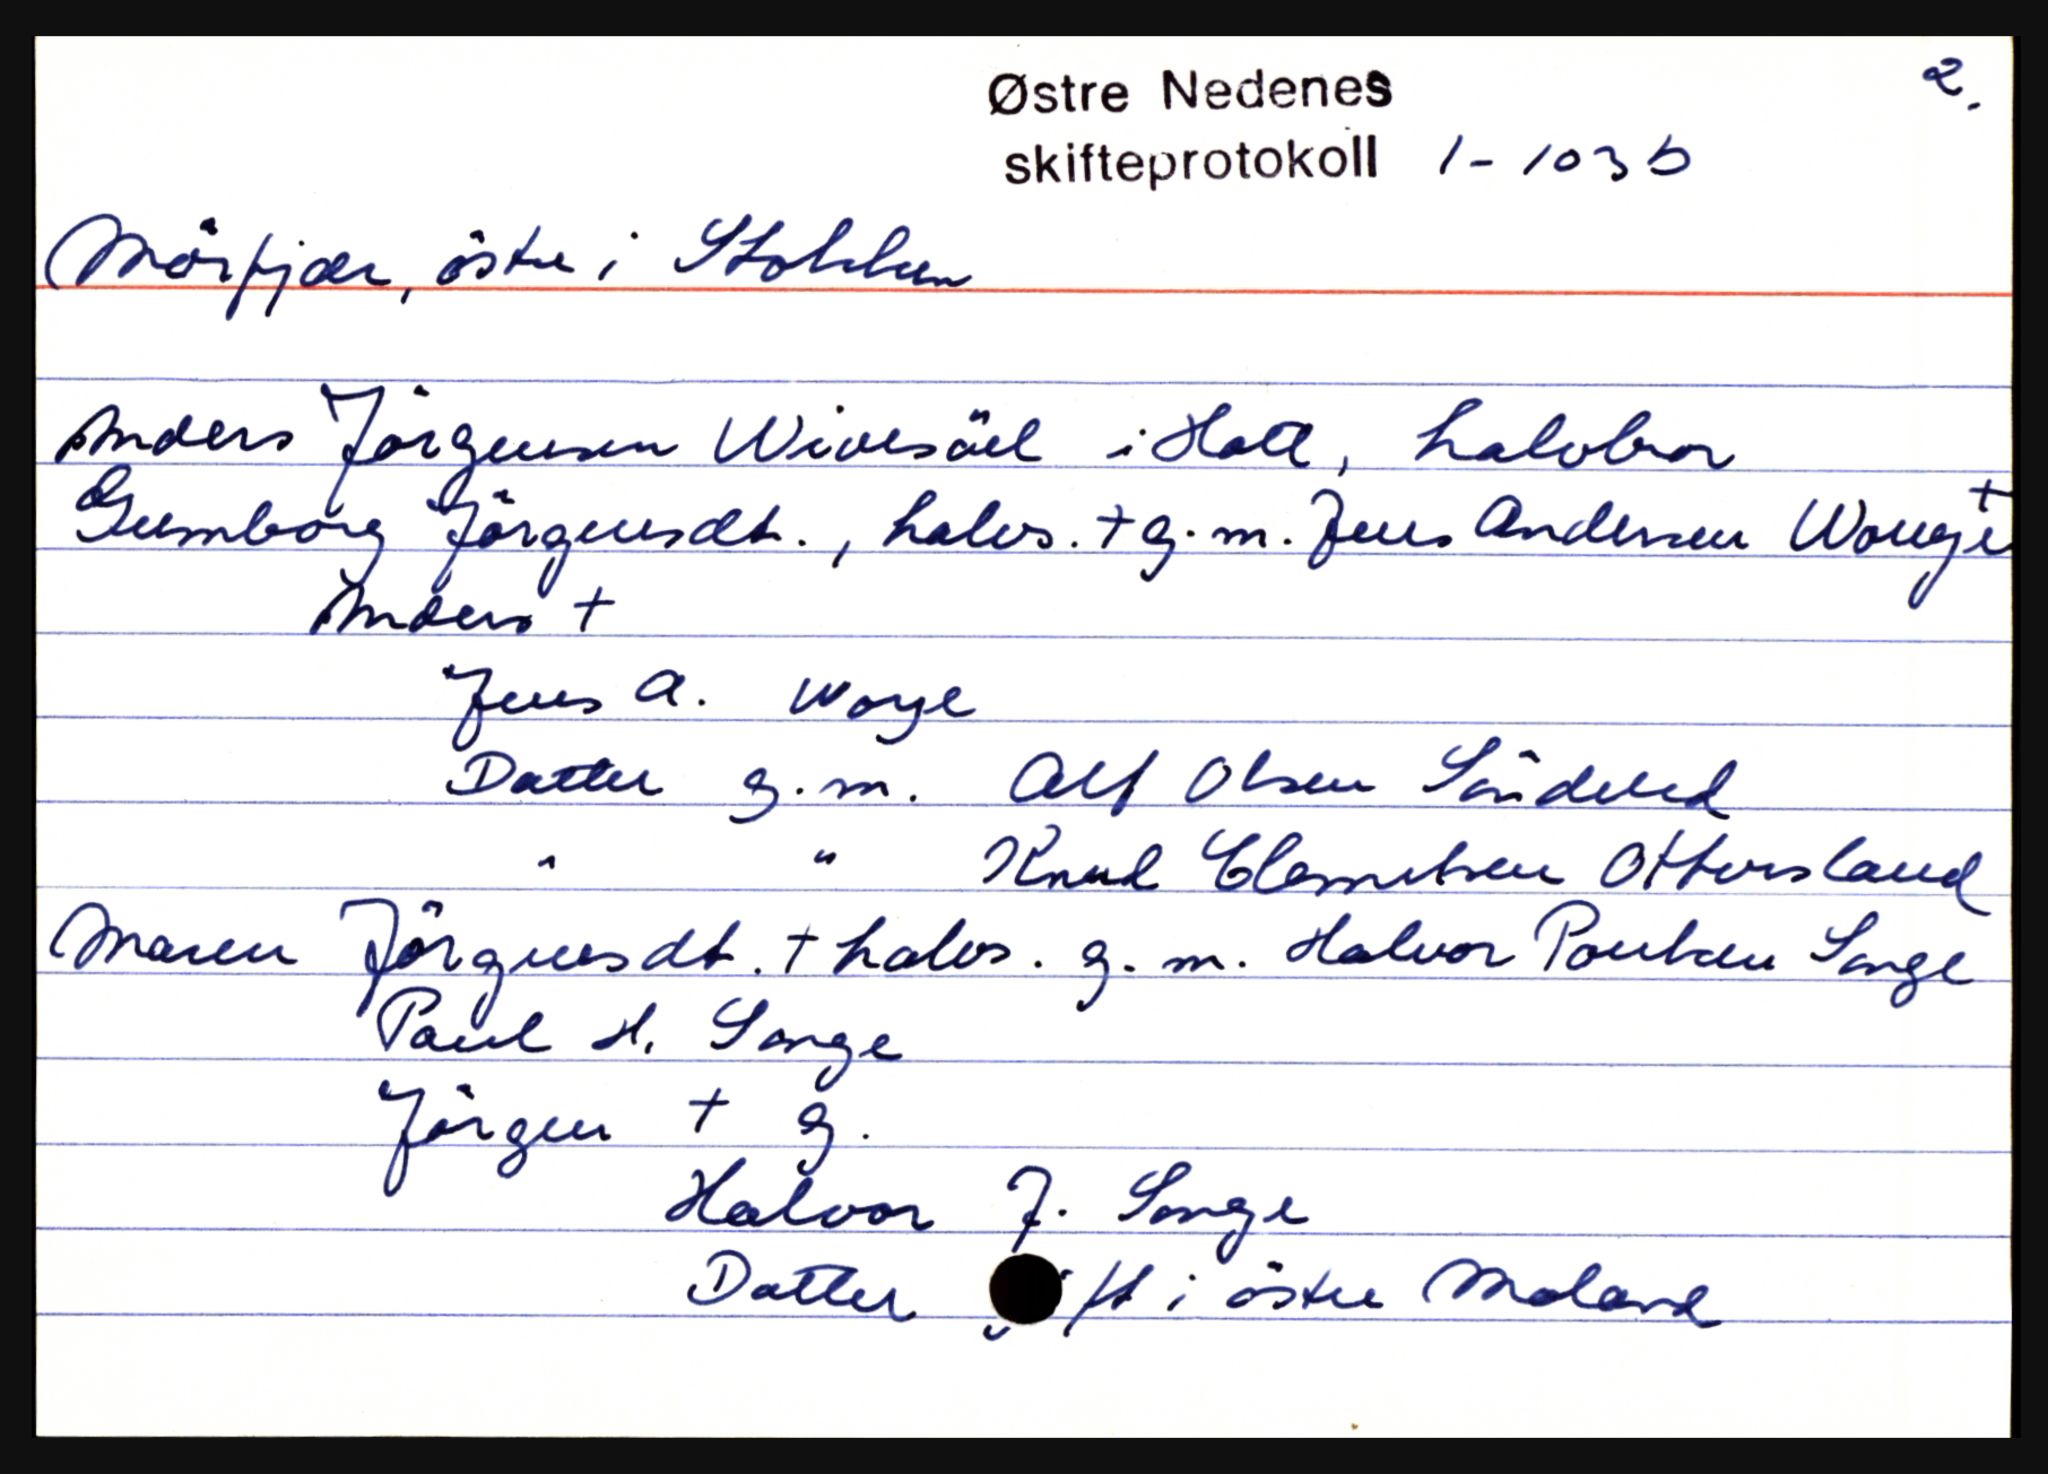 2.
Østre Nedenes
skifteprotokoll 1-103 b
Mörfjær, östre i Stokken
Anders Jörgensen Wivesöel i Holt, halvbror
Gumborg Jörgensdt., halvs. + g.m. Jens Andersen Wouge +
Anders +
Jens A. Woye
Datter g.m. Alf Olsen Söndeled
" " Knud Clemetsen Ottersland
Maren Jörgensdt. + halvs. g.m. Halvor Poulsen Songe
Paul H. Songe
Jörgen + g.
Halvor J. Songe
Datter gift i östre Moland